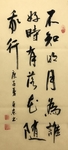 不知明月為誰
好時有落花隨
我行